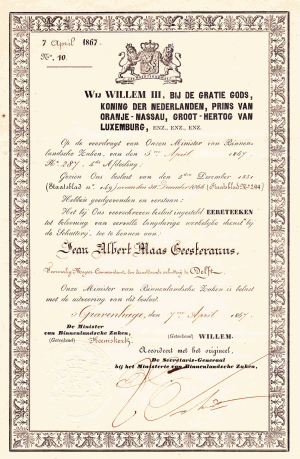 7 April 1867.
No. 10.
WIJ WILLEM III, BIJ DE GRATIE GODS,
KONING DER NEDERLANDEN, PRINS VAN
ORANJE-NASSAU, GROOT-HERTOG VAN
LUXEMBURG, ENZ., ENZ., ENZ.
Op de voordragt van Onzen Minister van Binnen-
landsche Zaken, van den 5den April 1867
No. 287. 5de Afdeeling;
Gezien Ons besluit van den 5den December 1851
(Staatsblad no. 149) December (Staatsblad No. 204)
Hebben goedgevonden en verstaan:
Het bij Ons voorschreven besluit ingesteld EERETEEKEN
tot belooning van eervolle langdurige werkelijke dienst bij
de Schutterij, toe te kennen aan:
Jean Albert Maas Geesteranus.
Commandant der schutterij te Delft
Onze Minister van Binnenlandsche Zaken is belast
met de uitvoering van dit besluit.
's Gravenhage, den 7den April 1867.
De Minister
van Binnenlandsche Zaken,
(Geteekend) Heemskerk.
(Geteekend) WILLEM.
Accordeert met het origineel,
De Secretaris-Generaal
bij het Ministerie van Binnenlandsche Zaken,